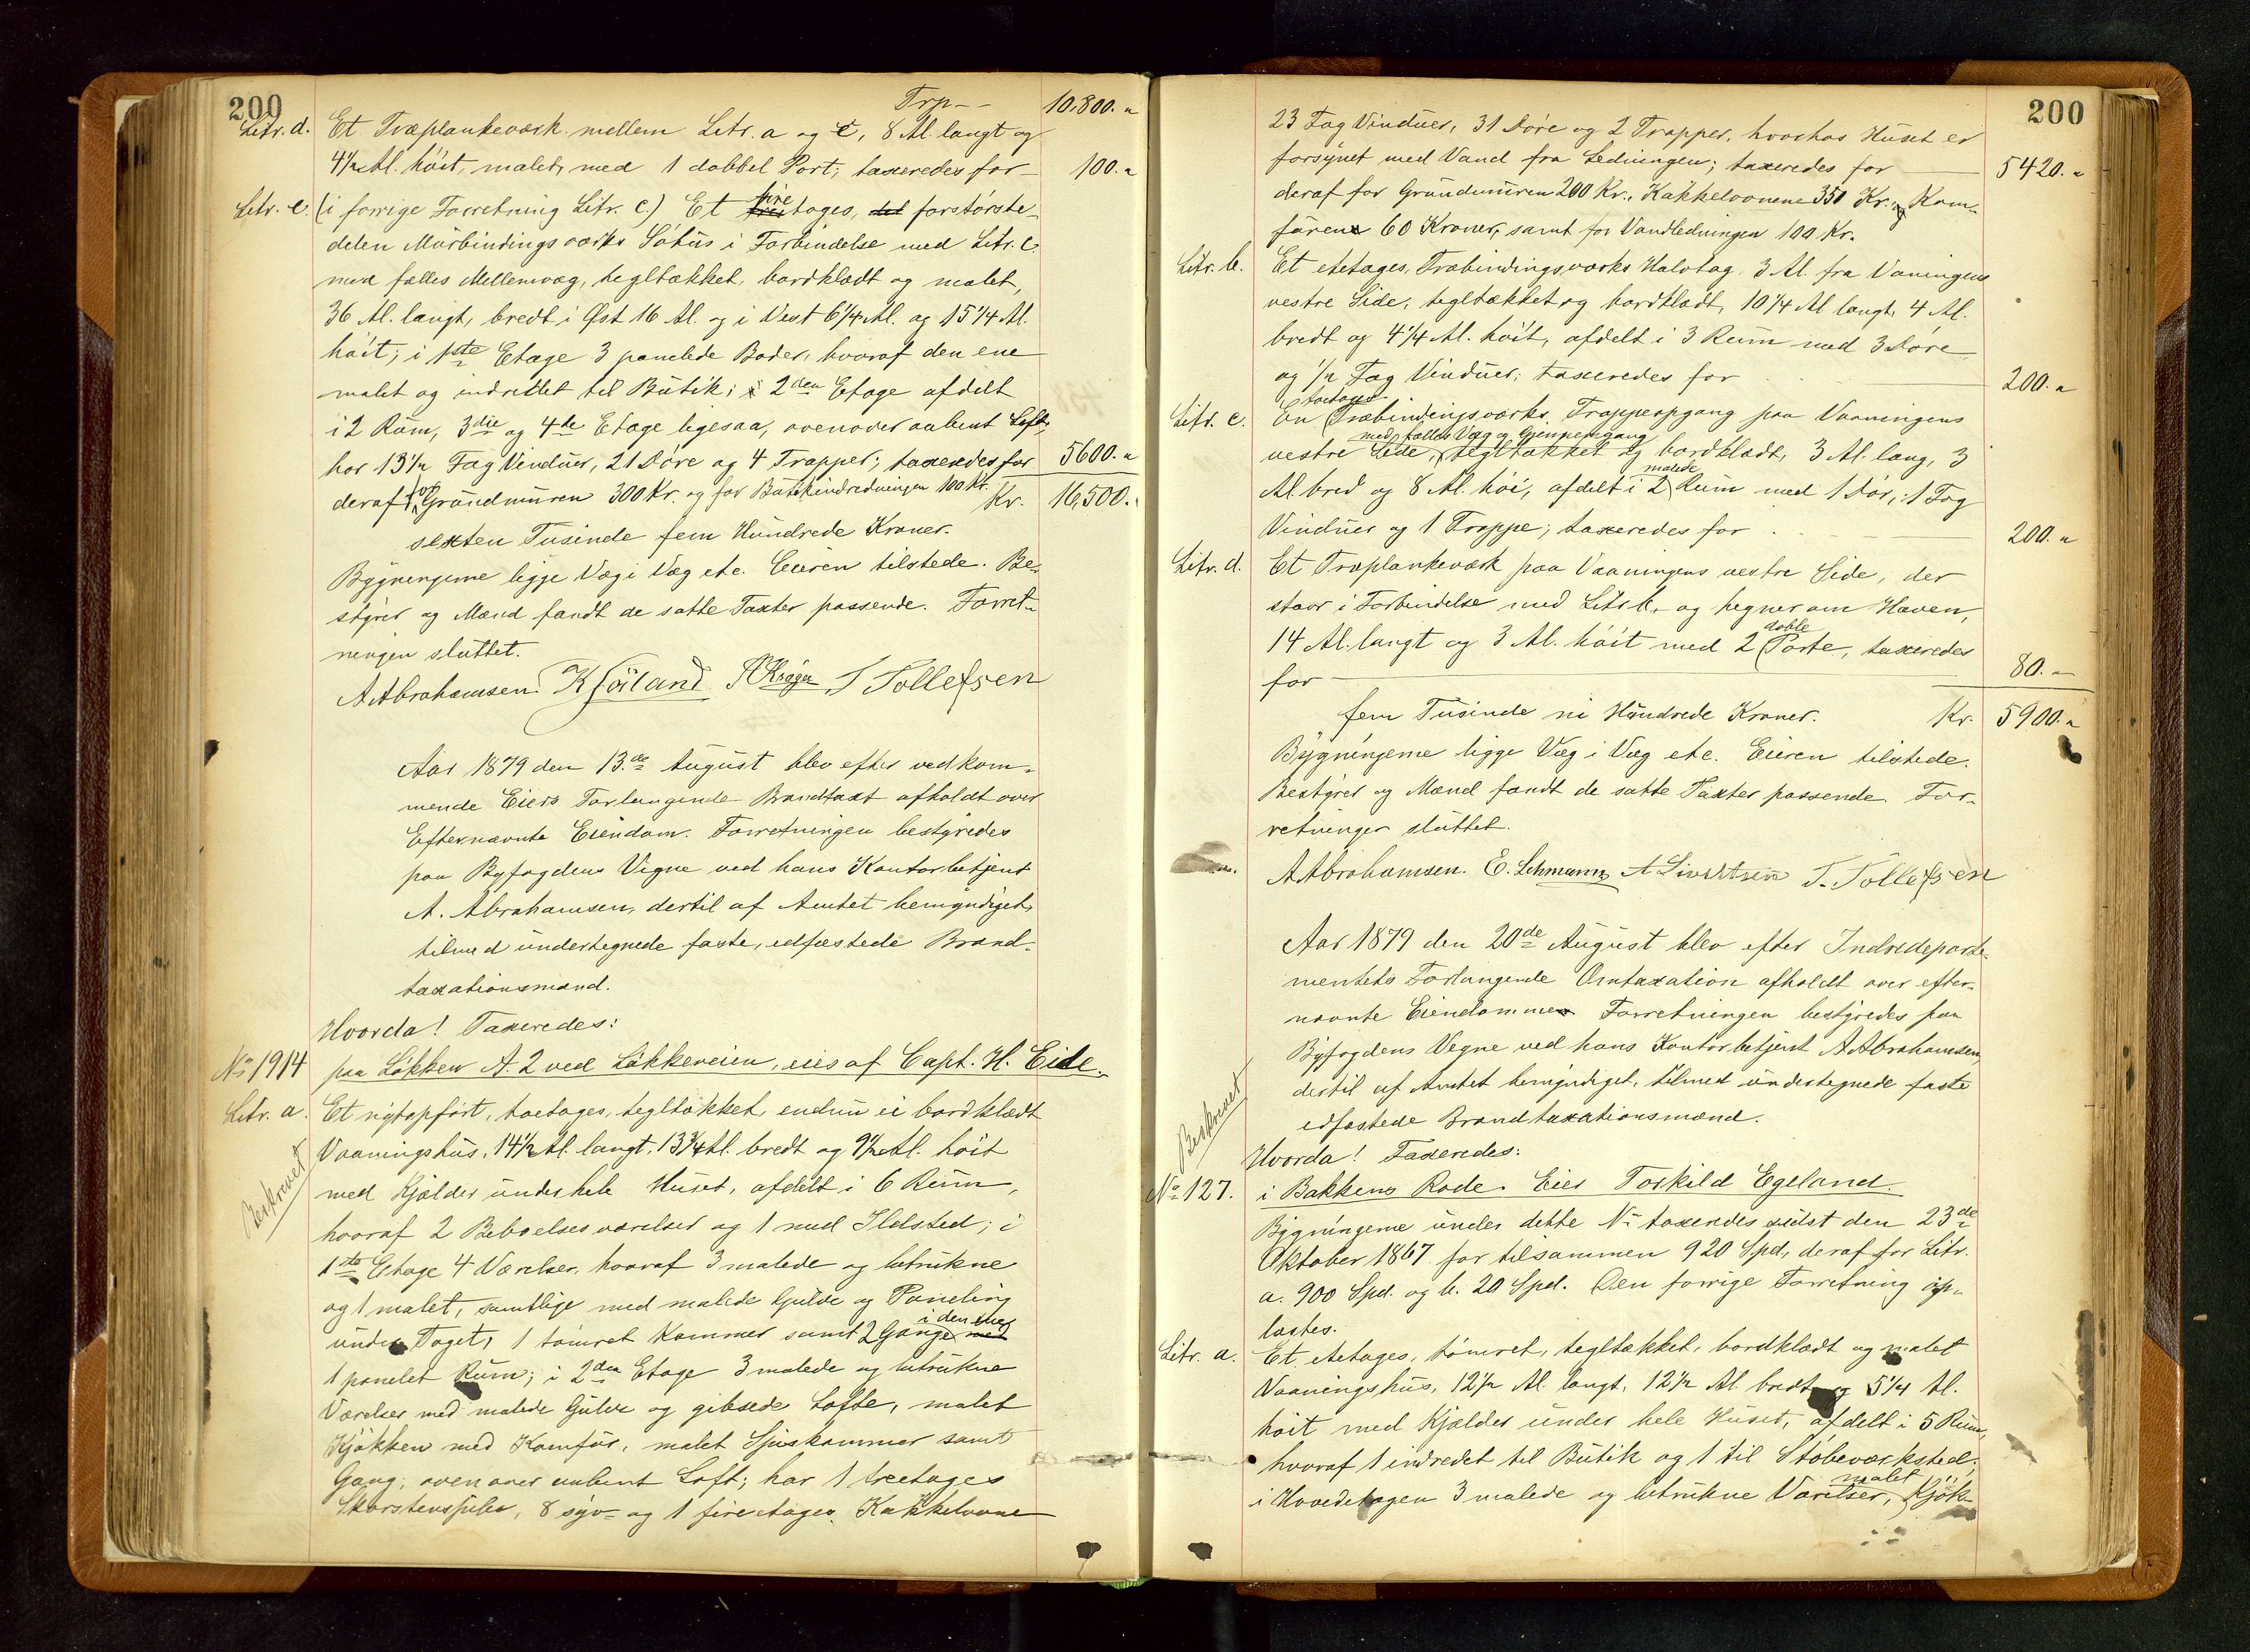 200
Trp-- 10,800."
Litr. d. Et Træplankeværk mellem Litr. a og e, 8 Al. langt og
4½ Al. höit, malet, med 1 dobbel Port; taxeredes for 100."
Litr. e. (i forrige Forretning Litr. c.) Et fire etages, forstørste-
delen Murbindingsværks Söhus i Forbindelse med Litr. c.
med fælles Mellemvæg, tegltækket, bordklædt og malet,
36 Al. langt, bredt i Øst 16 Al. og i Vest 6¼ Al. og 15¼ Al.
höit; i 1ste Etage 3 panelede Boder, hvoraf den ene
malet og indrettet til Butik; i 2den Etage afdelt
i 2 Rum, 3die og 4de Etage ligesaa, ovenover aabent Loft;
har 13½ Fag Vinduer, 21 Döre og 4 Trapper; taxeredes for 5600."
deraf for Grundmuren 300 Kr. og for Butikindredningen 100 Kr. Kr. 16,500."
sexten Tusinde fem Hundrede Kroner.
Bygningerne ligge Væg i Væg etc. Eieren tilstede. Be-
styrer og Mænd fandt de satte Taxter passende. Forret-
ningen sluttet.
A. Abrahamsen. K Joiland T. Tollefsen
Aar 1879 den 13.de August blev efter vedkom-
mende Eiers Forlangende Brandtaxt afholdt over
Efternævnte Eiendom. Forretningen bestyredes
paa Byfogdens Vegne ved hans Kontorbetjent
A. Abrahamsen, dertil af Amtet bemyndiget,
tilmed undertegnede faste, edfæstede Brand-
taxationsmænd.
Hvorda! Taxeredes:
No 1914 paa Lökken A. 2 ved Lökkeveien, eies af Capt. H. Eide.
Litr. a. Et nytopfört, toetages, tegltækket, endnu ei bordklædt
Vaaningshus, 14½ Al. langt, 13¾ Al. bredt og 9½ Al. höit
Beskrevet
med Kjælder under hele Huset, afdelt i 6 Rum,
hvoraf 2 Beboelsesværelser og 1 med Ildsted; i
1ste Etage 4 Værelser, hvoraf 3 malede og betrukne
og 1 malet, samtlige med malede Gulve og Paneling
under Taget, 1 tömret Kammer samt 2 Gange i den ene med
1 panelet Rum; i 2den Etage 3 malede og betrukne
Værelser med malede Gulve og gibsede Lofte, malet
Kjökken med Komfur, malet Spiskammer samt
Gang, ovenover aabent Loft; har 1 treetages
Skorstenspibe, 8 syv- og 1 fireetages Kakkelovne
200
23 Fag Vinduer, 31 Döre og 2 Trapper, hvorhos Huset er
forsynet med Vand fra Ledningen; taxeredes for 5420."
deraf for Grundmuren 200 Kr., Kakkelovnene 350 Kr., Kom-
furen 60 Kroner, samt for Vandledningen 100 Kr.
Litr. b. Et etetages, Træbindingsværks Halvtag 3 Al. fra Vaningens
vestre Side, tegltækket og bordklædt, 10¼ Al langt, 4 Al.
bredt og 4¼ Al. höit, afdelt i 3 Rum med 3 Döre
og ½ Fag Vinduer; taxeredes for 200."
Litr. c. En toetages Træbindingsværks Trappeopgang paa Vaaningens
vestre Side, med fælles Væg og Gjennemgang tegltækket og bordklædt, 3 Al. lang, 3
Al. bred og 8 Al. höi, afdelt i 2 malede Rum med 1 Dör, 1 Fag
Vinduer og 1 Trappe; taxeredes for 200."
Litr. d. Et Træplankeværk paa Vaaningens vestre Side, der
staar i Forbindelse med Litr. b. og hegner om Haven,
14 Al. langt og 3 Al. höit med 2 doble Porte, taxeredes
for 80."
fem Tusinde ni Hundrede Kroner. Kr. 5900."
Bygningerne ligge Væg i Væg etc. Eieren tilstede.
Bestyrer og Mænd fandt de satte Taxter passende. For-
retningen sluttet.
A. Abrahamsen. E. Lehmann T. Tollefsen
Aar 1879 den 20de August blev efter Indredeparte-
mentets Forlangende Omtaxation afholdt over efter-
nævnte Eiendomme. Forretningen bestyredes paa
Byfogdens Vegne ved hans Kontorbetjent A. Abrahamsen,
dertil af Amtet bemyndiget, tilmed undertegnede faste
edfæstede Brandtaxationsmænd.
Beskrevet
Hvorda! Taxeredes:
No 127. i Bakkens Rode. Eier Torkild Egeland.
Bygningerne under dette No taxeredes sidst den 23de
Oktober 1867 for tilsammen 920 Spd, deraf for Litr.
a. 900 Spd. og b. 20 Spd. Den forrige Forretning op-
læstes.
Litr. a. Et etetages, tömret, tegltækket, bordklædt og malet
Vaaningshus, 12½ Al. langt, 12½ Al. bredt og 5¼ Al.
höit med Kjælder under hele Huset, afdelt i 5 Rum,
hvoraf 1 indredet til Butik og 1 til Stöbeværksted;
i Hovedetagen 3 malede og betrukne Værelser, malet Kjök-